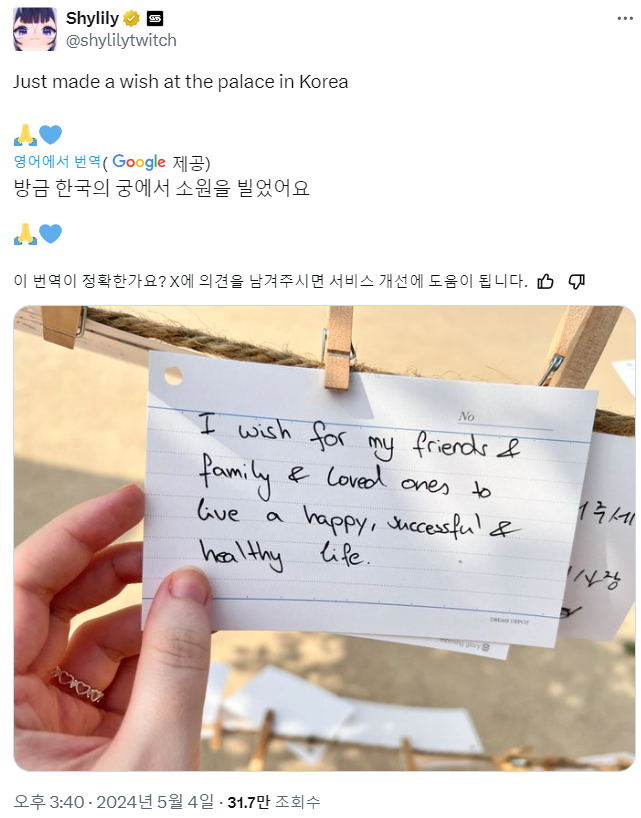 Shylily
@shylilytwitch
Just made a wish at the palace in Korea
🙏💙
영어에서 번역( Google 제공)
방금 한국의 궁에서 소원을 빌었어요
🙏💙
이 번역이 정확한가요? X에 의견을 남겨주시면 서비스 개선에 도움이 됩니다.
No
I wish for my friends &
family & loved ones to
live a happy, successful &
healthy life.
DREAM DEPOT
morning glory
주세
오후 3:40 · 2024년 5월 4일 · 31.7만 조회수